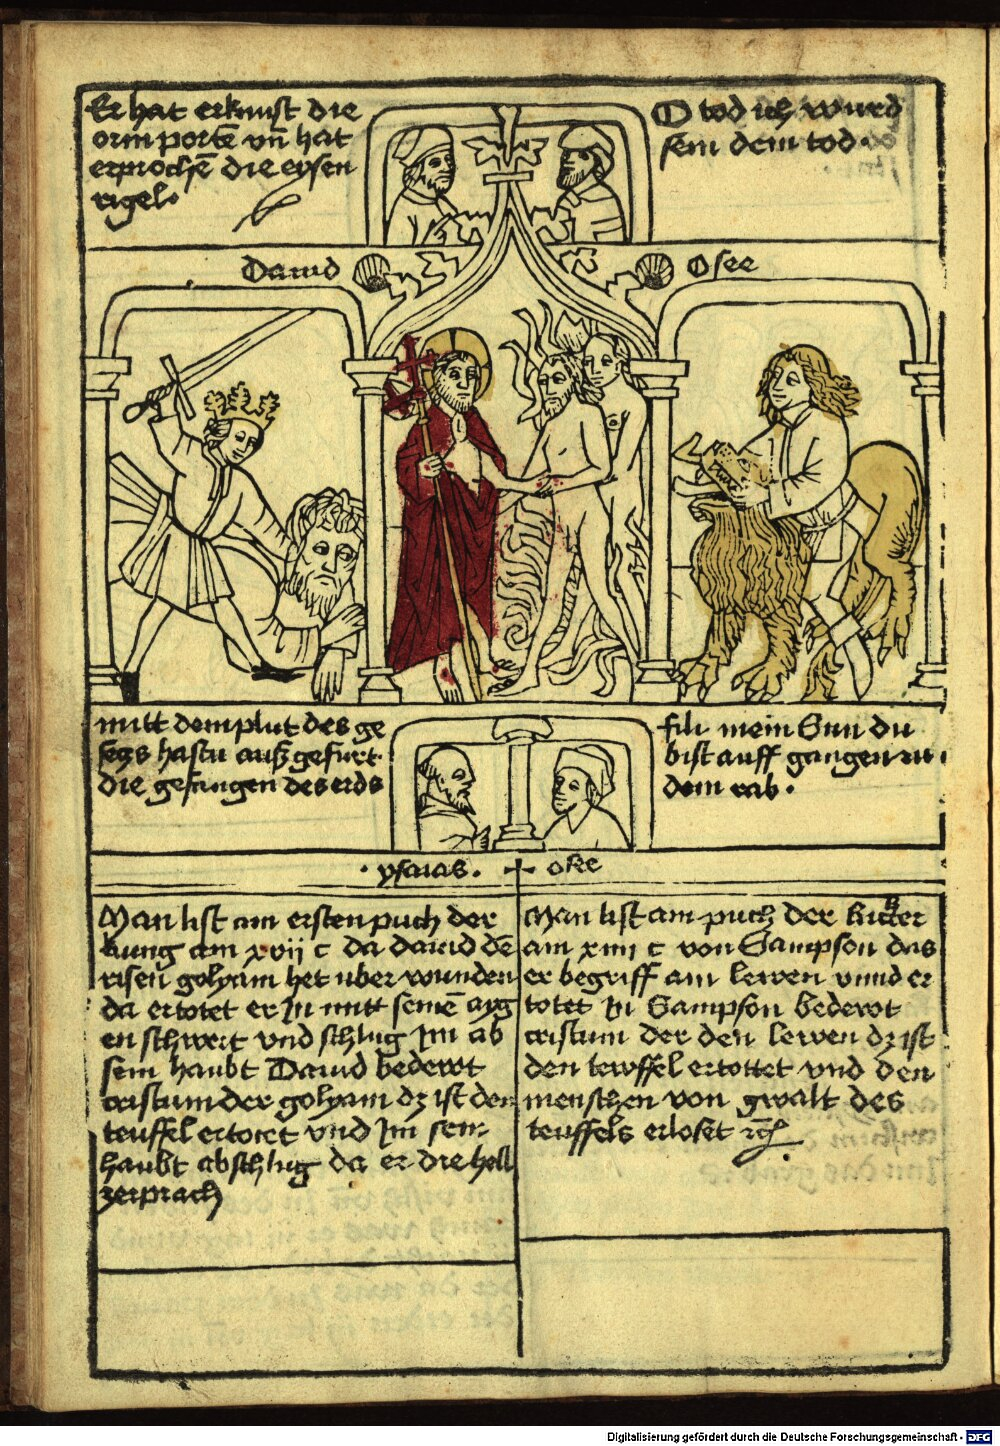 Er hat erknust die
orin porte͂ vn̄ hat
erproche͂ die eysen
rigel.
O tod ich wurd
sein dem tod.
Dauid
Osee
mitt dem plut des ge
seczs hastu auß gefurt
die gefangen des erds
fili mein Sun du
bist auff gangen zu
dem rab.
. ysaias. oke
Man list am ersten puch der
kung am xvii c da dauid de͂
risen golyam het uber wunden
da ertotet er In mitt seine͂ ayg
en schwert vnd schlug Im ab
sein haubt Dauid bedewt
cristum der golyam dz ist den
teuffel ertotet vnd Im sein
haubt abschlug da er die hell
zerprach
Man list am puch der Ritter
am xiiii c von Sampson das
er begriff ain lewen vnnd er
totet In Sampson bedewt
cristum der den lewen dz ist
den tewffel ertottet vnd den
menschen von gwalt des
teuffels erloset
Digitalisierung gefördert durch die Deutsche Forschungsgemeinschaft - DFG